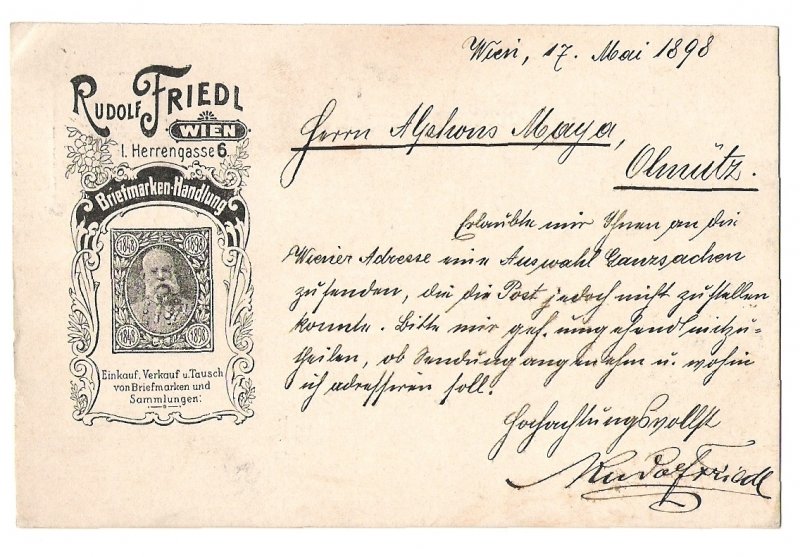 RUDOLF FRIEDL
WIEN
I. Herrengasse 6
Briefmarken-Handlung
1848 1898
1848 1898
Einkauf, Verkauf u. Tausch
von Briefmarken und
Sammlungen.
Wien, 17. Mai 1898
Herrn Alphons Maya,
Olmütz.
Erlaubte mir Ihnen an die
Wiener Adresse eine Auswahl Ganzsachen
zu senden, die die Post jedoch nicht zustellen
konnte. Bitte mir gef. umgehend mitzu-
theilen, ob Sendung angenehm u. wohin
ich adressieren soll.
Hochachtungsvollst
Rudolf Friedl